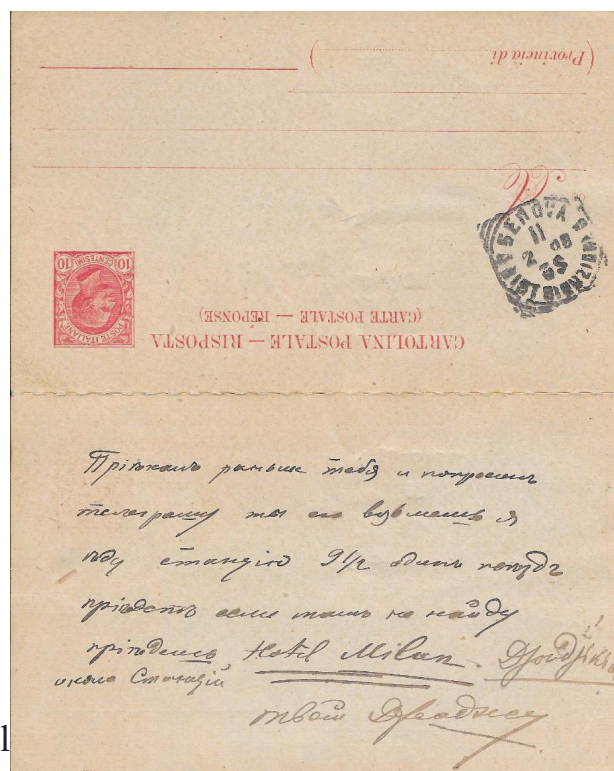 (Provincia di )
CARTOLINA POSTALE — RISPOSTA
(CARTE POSTALE — RÉPONSE)
POSTE ITALIANE
10 CENTESIMI 10
GENOVA
11
2 08
Пріѣхалъ раньше тебя и попросилъ
телеграму ты его возьмешь я
ѣду станцію 9 1/2 одинъ поѣздъ
пріѣдетъ если тамъ не найду
пріѣдешь Hotel Milan
около Станціи
твой
l